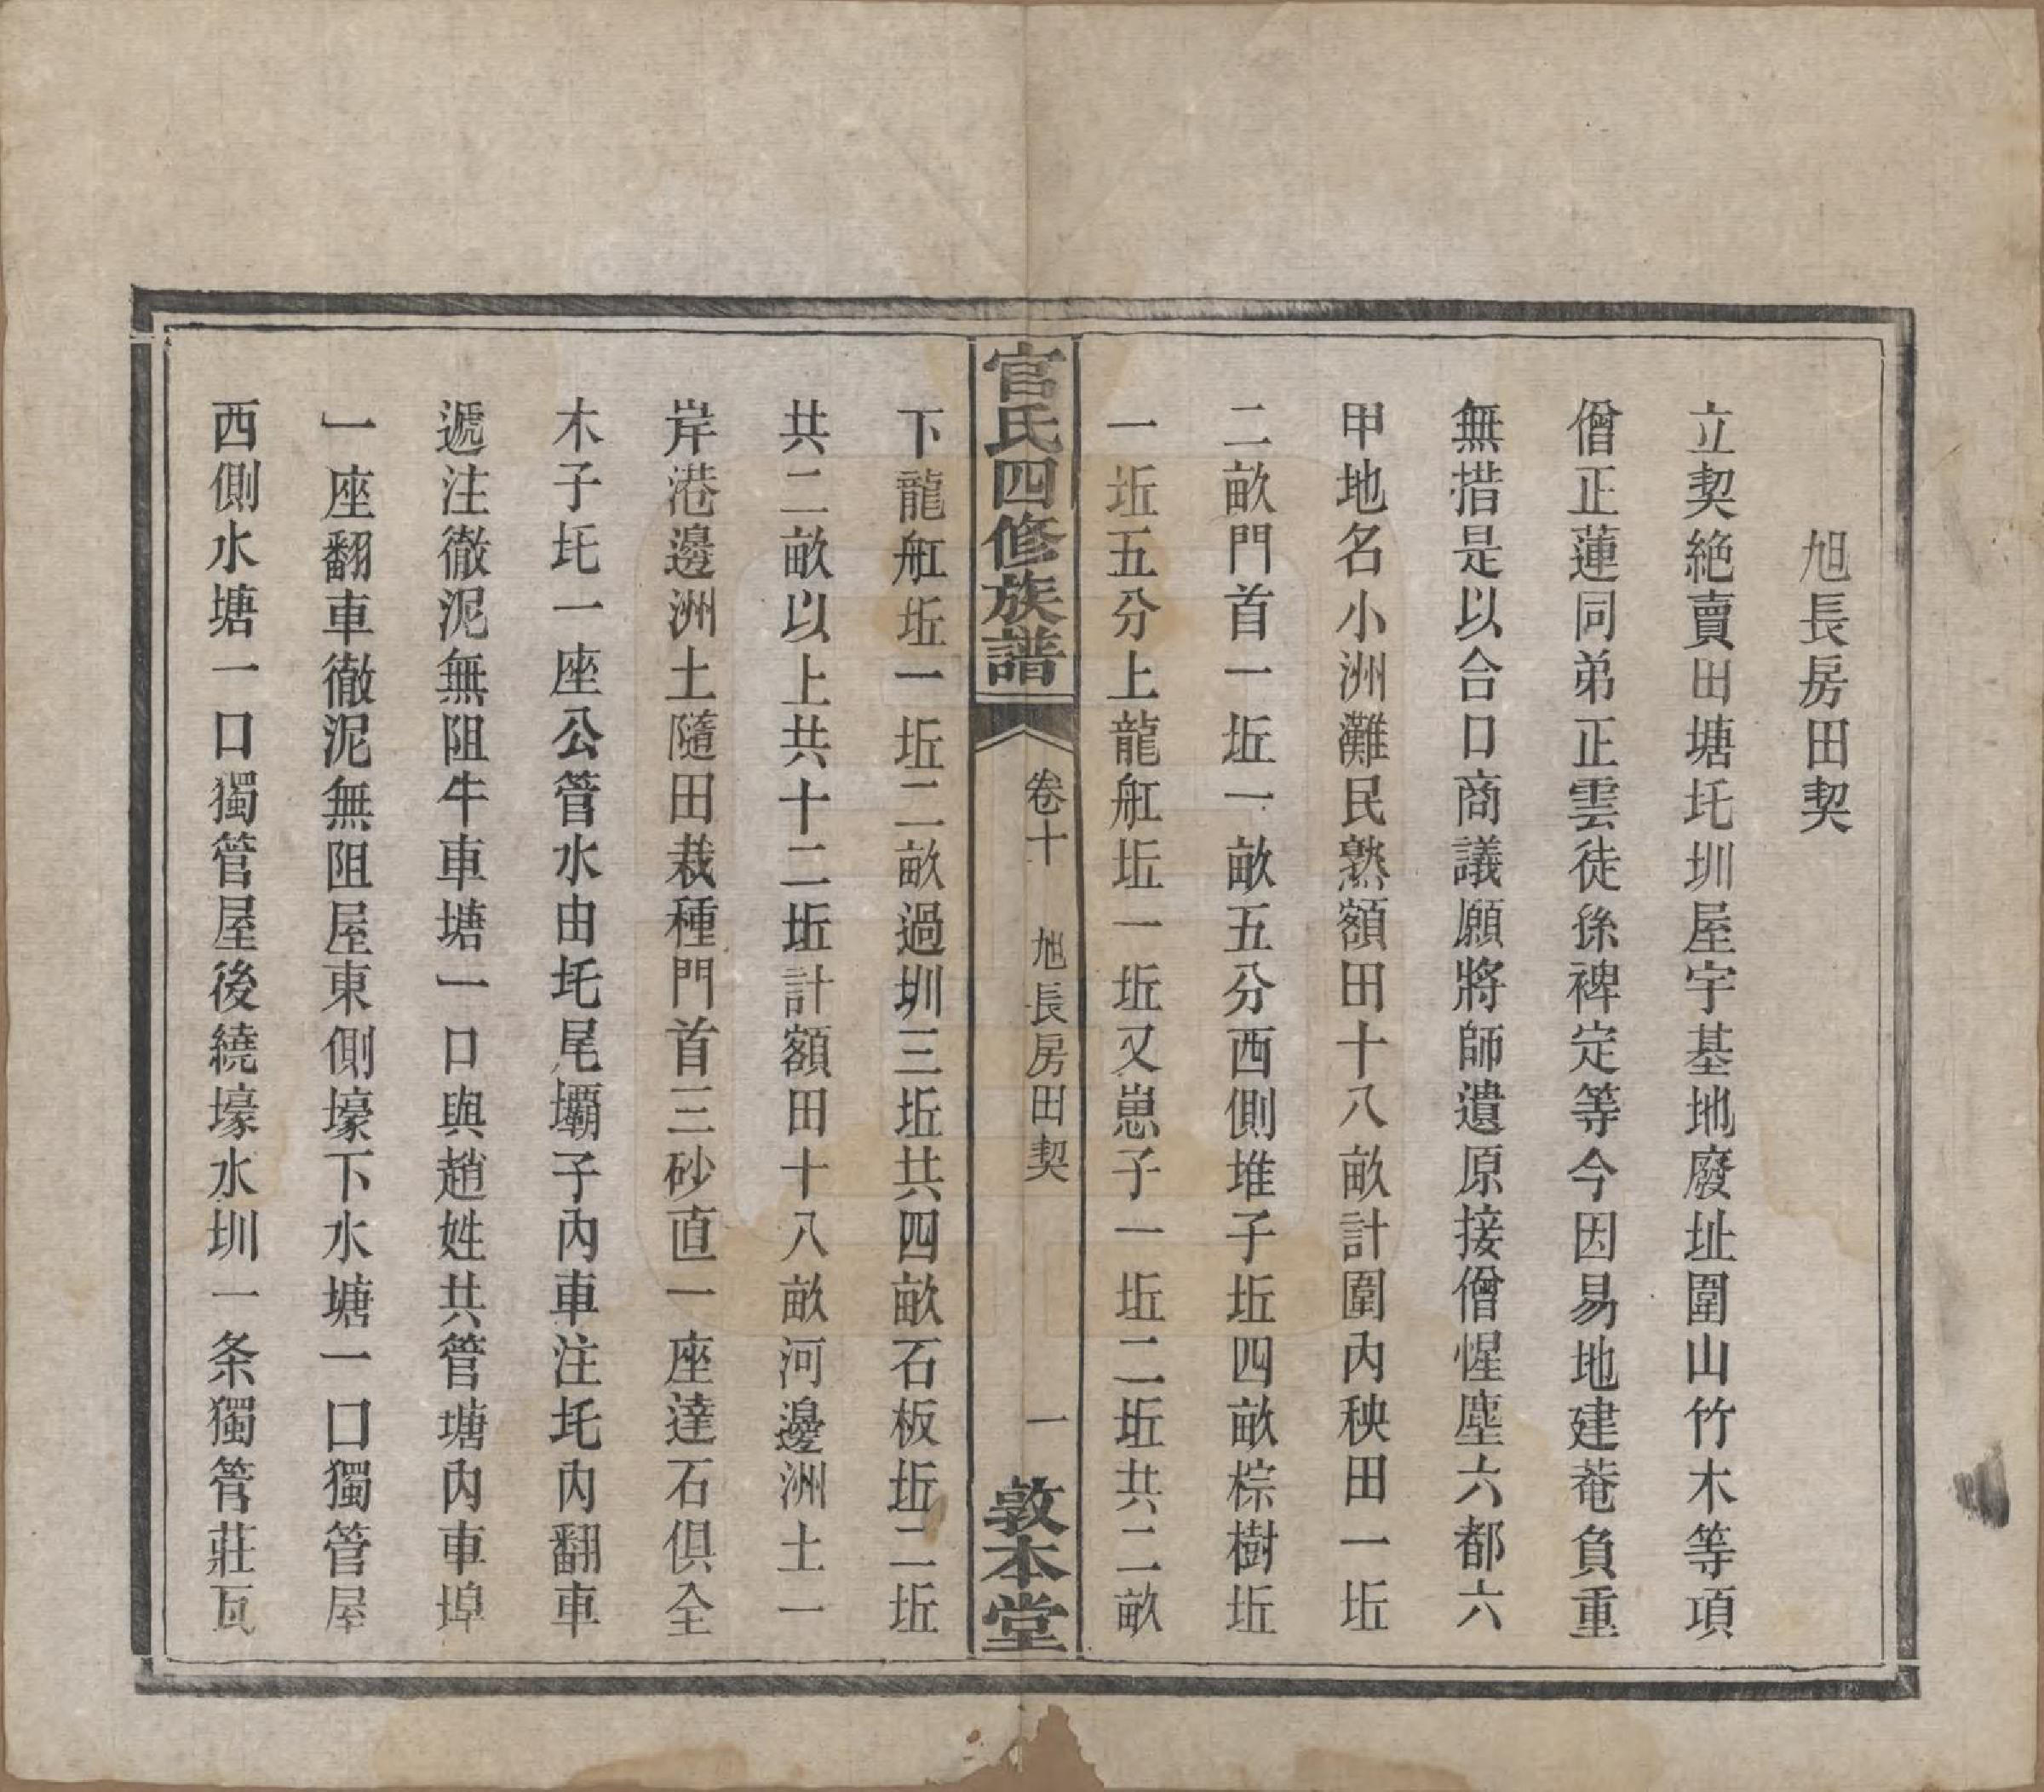 旭長房田契
立契絶賣田塘圫圳屋宇基地廢址圍山竹木等項
僧正蓮同弟正雲徒孫裨定等今因易地建菴負重
無措是以合口商議願將師遺原接僧惺塵六都六
甲地名小洲灘民熟額田十八畝計圍內秧田一坵
二畝門首一坵一畝五分西側堆子坵四畝棕樹坵
一坵五分上龍舡坵一坵又崽子一坵二坵共二畝
官氏四修族譜
卷十
旭長房田契
一
敦本堂
下龍舡坵一坵二畝過圳三坵共四畝石板坵二坵
共二畝以上共十二坵計額田十八畝河邊洲土一
岸港邊洲土隨田栽種門首三砂直一座達石俱全
木子圫一座公管水由圫尾壩子內車注圫內翻車
遞注徹泥無阻牛車塘一口與趙姓共管塘內車埠
一座翻車徹泥無阻屋東側壕下水塘一口獨管屋
西側水塘一口獨管屋後繞壕水圳一条獨管莊瓦